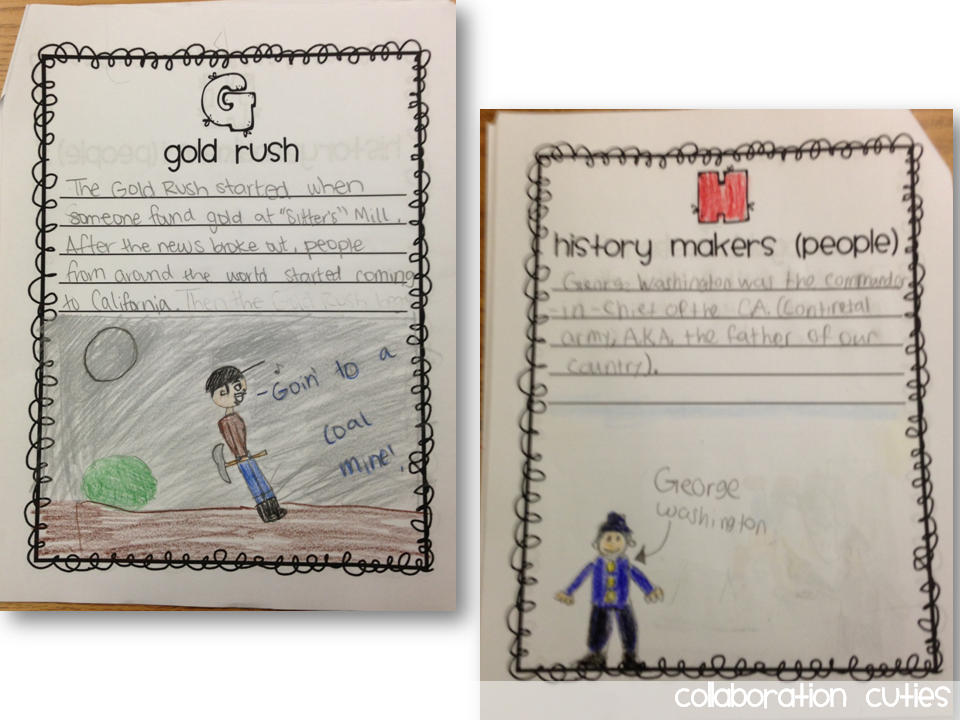 G
gold rush
The Gold Rush started when
someone found gold at "Sitter's" Mill.
After the news broke out, people
from around the world started coming
to California. Then the Gold Rush
-Goin' to a
coal
mine!
H
history makers (people)
George Washington was the commander
-in-chief of the CA. (Contiretal
army, A.K.A. the father of our
country).
George
Washington
collaboration cuties